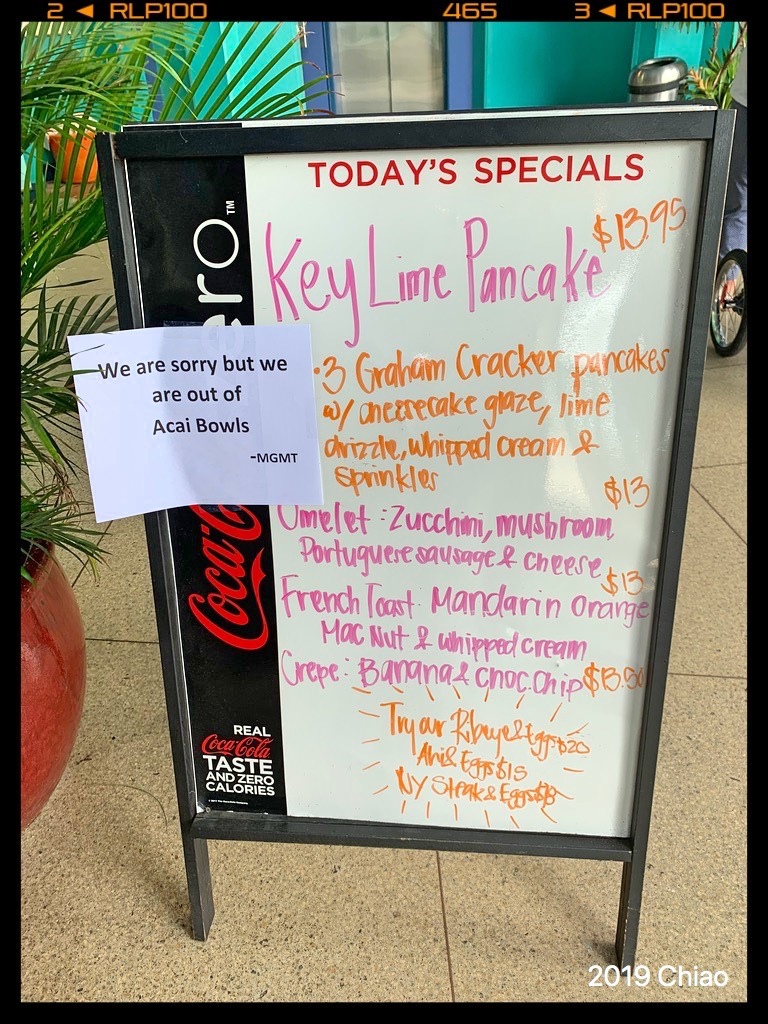 2 ◄ RLP100 465 3 ◄ RLP100
TODAY'S SPECIALS
Key Lime Pancake $13.95
·3 Graham Cracker pancakes
w/ cheesecake glaze, lime
drizzle, whipped cream &
sprinkles
$13
Omelet : Zucchini, mushroom,
Portuguese sausage & cheese
$13
French Toast: Mandarin orange
Mac Nut & whipped cream
Crepe: Banana & choc. chip $13.50
Try our Ribeye & Eggs $20
Ahi & Eggs $15
NY Steak & Eggs
ero™
We are sorry but we
are out of
Acai Bowls
-MGMT
Coca-C
REAL
Coca-Cola
TASTE
AND ZERO
CALORIES
2019 Chiao